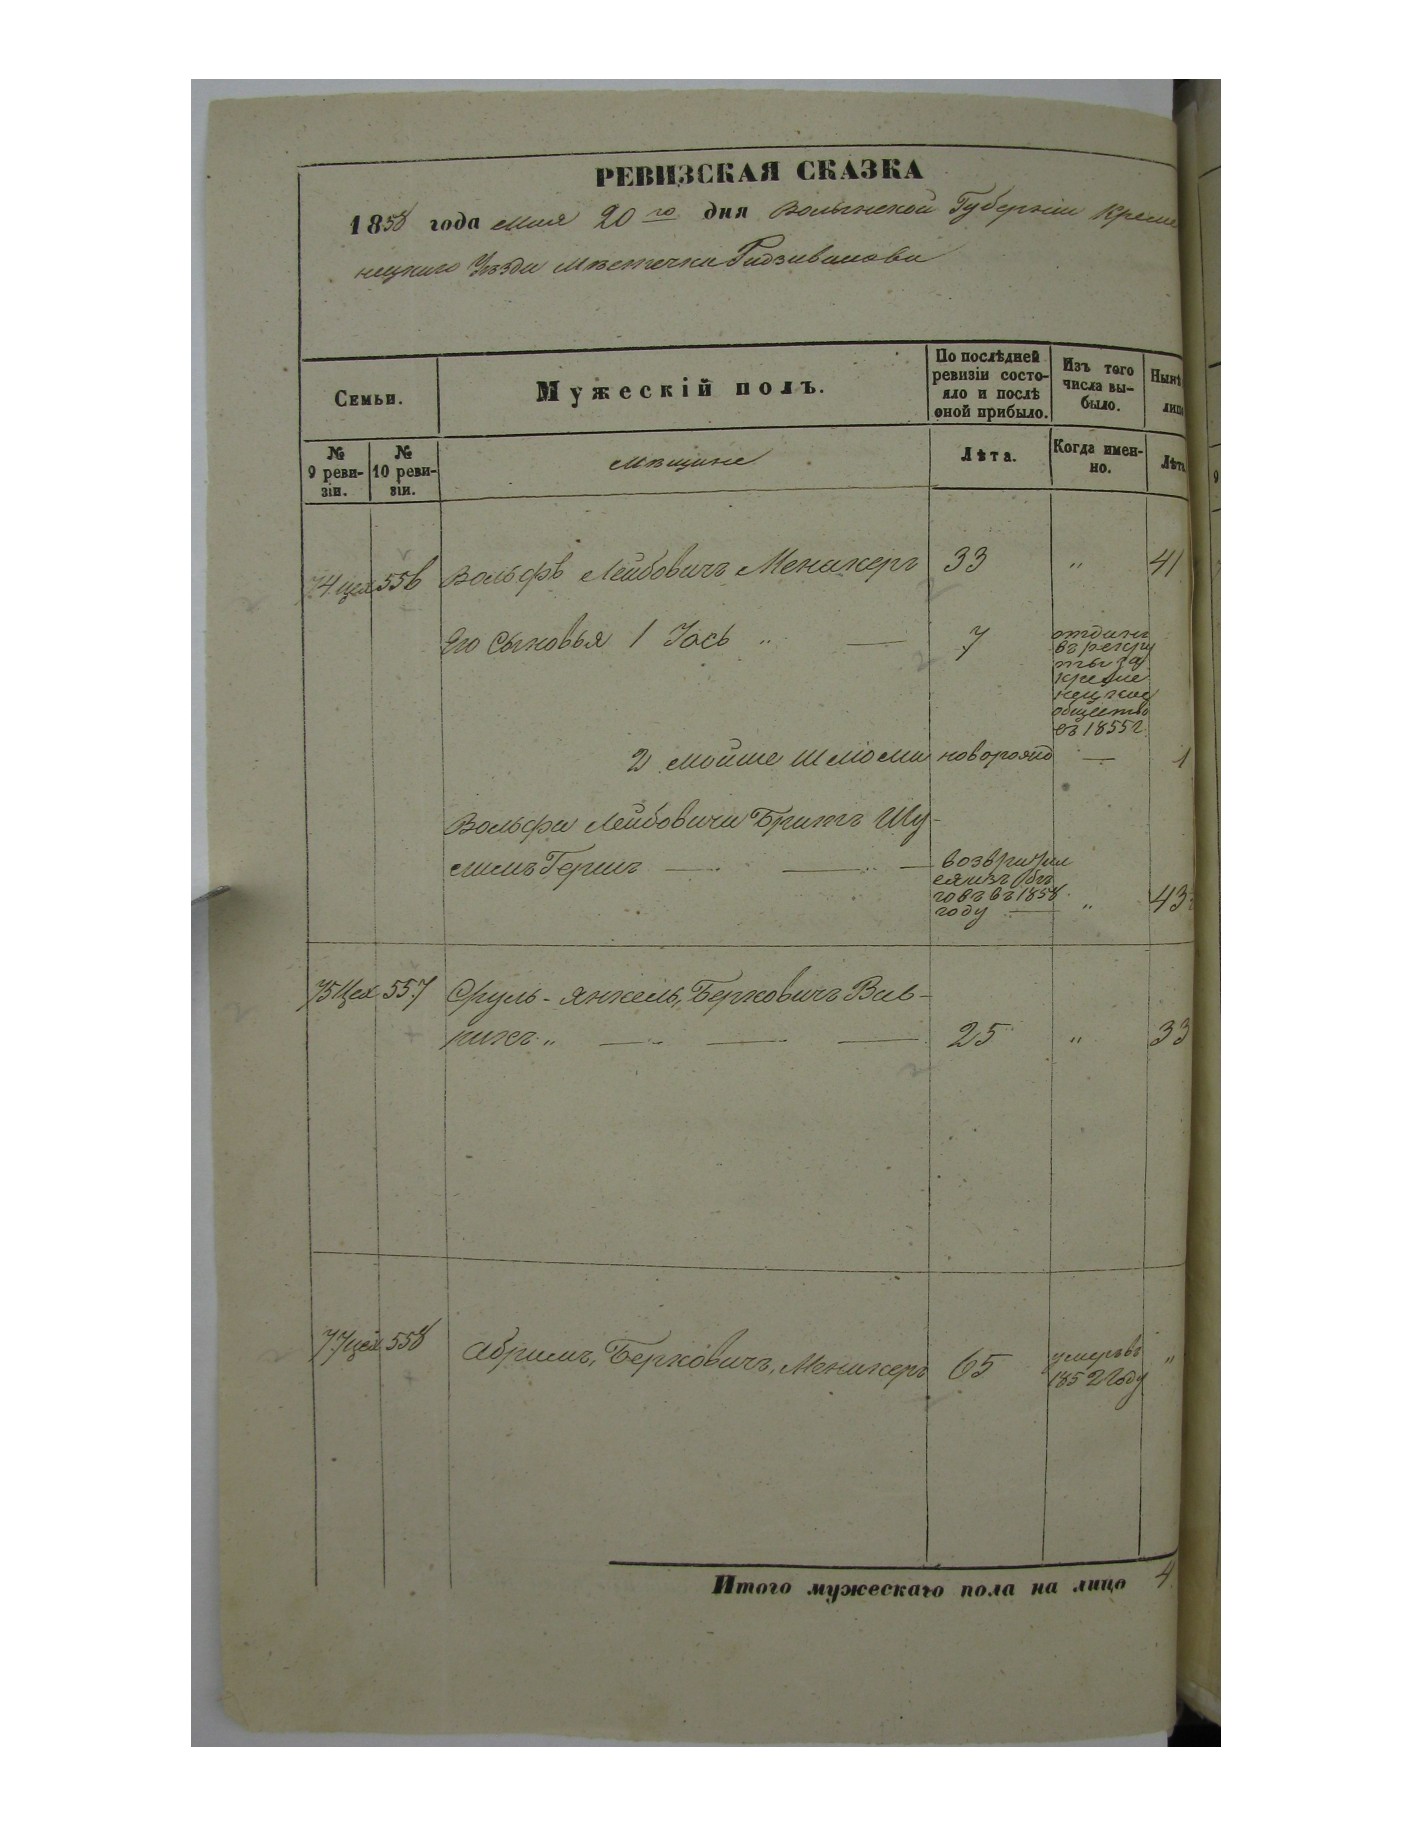 РЕВИЗСКАЯ СКАЗКА
1858 года мая 20 го дня Волынской Губерніи Креме
нецкаго Уѣзда мѣстечка Радзивилова
Семьи.
Мужескій полъ.
По послѣдней ревизіи состояло и послѣ оной прибыло.
Изъ того числа выбыло.
Нынѣ лицо
№ 9 ревизіи.
№ 10 ревизіи.
мѣщане
Лѣта.
Когда именно.
Лѣта
74 цех 556 Вольфъ Лейбовичъ Менакеръ 33 „ 41
Его сыновья 1 Іось „ — 7 отданъ
въ рекру
ты за
креме
нецкое
общество
въ 1855 г.
2 Мойше Шлюма новорожд — 1
Вольфа Лейбовича братъ Шу-
лимъ Гершъ — — — возвратил
ся из бѣ
говъ въ 1858
году — „ 43
75 Цех 557 Сруль-Янкель, Берковичъ Вав-
рикъ „ — — — 25 „ 33
77 цех 558 Абрамъ, Берковичъ, Менакеръ 65 умеръ въ
1852 году „
Итого мужескаго пола на лицо 4